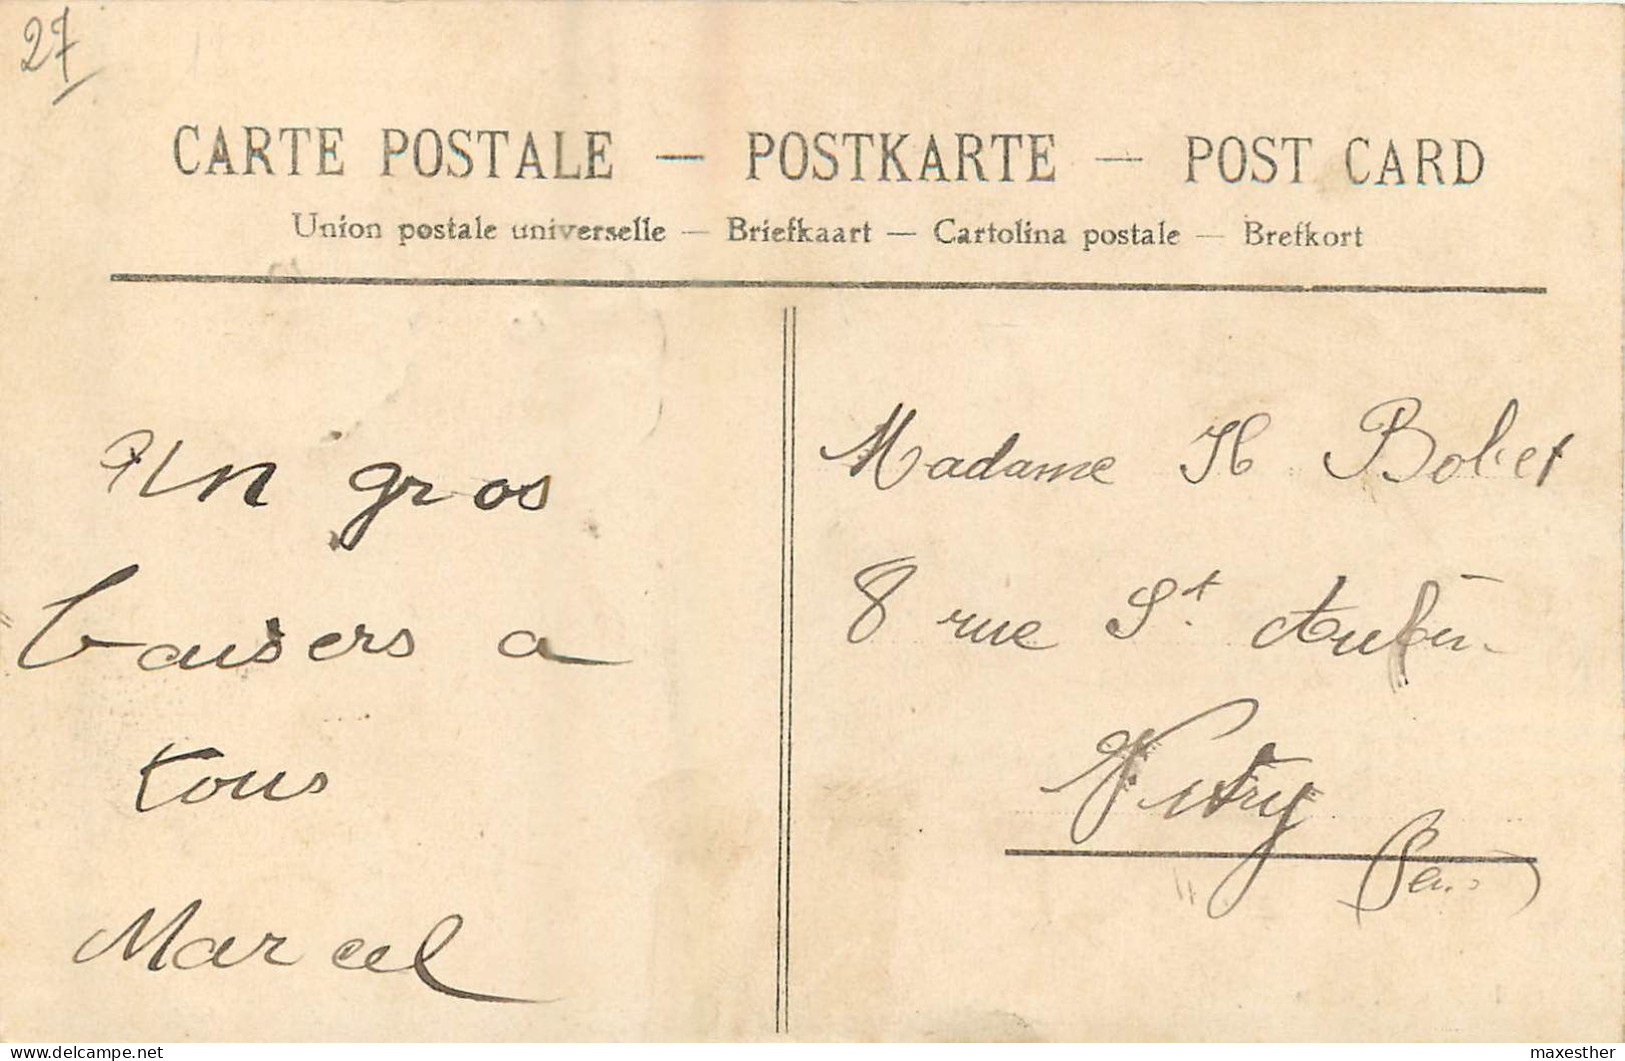 27
CARTE POSTALE — POSTKARTE — POST CARD
Union postale universelle — Briefkaart — Cartolina postale — Brefkort
Un gros
baisers a
tous
Marcel
Madame H Bobet
8 rue St Aubin
Vitry
maxesther